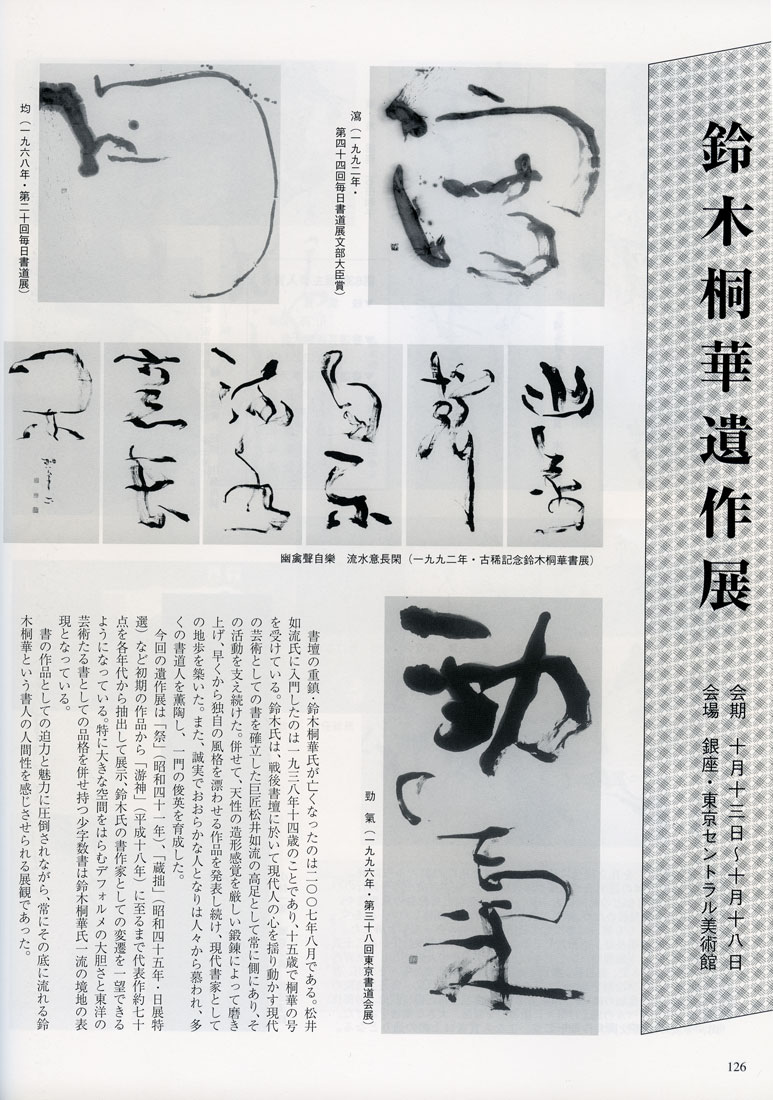 鈴木桐華遺作展
会期　十月十三日～十月十八日
会場　銀座・東京セントラル美術館
瀉（一九九二年・
第四十四回毎日書道展文部大臣賞）
均（一九六八年・第二十回毎日書道展）
幽禽聲自樂　流水意長閑（一九九二年・古稀記念鈴木桐華書展）
勁　氣（一九九六年・第三十八回東京書道会展）
書壇の重鎮・鈴木桐華氏が亡くなったのは二〇〇七年八月である。松井
如流氏に入門したのは一九三八年十四歳のことであり、十五歳で桐華の号
を受けている。鈴木氏は、戦後書壇に於いて現代人の心を揺り動かす現代
の芸術としての書を確立した巨匠松井如流の高足として常に側にあり、そ
の活動を支え続けた。併せて、天性の造形感覚を厳しい鍛錬によって磨き
上げ、早くから独自の風格を漂わせる作品を発表し続け、現代書家として
の地歩を築いた。また、誠実でおおらかな人となりは人々から慕われ、多
くの書道人を薫陶し、一門の俊英を育成した。
今回の遺作展は「祭」（昭和四十一年）、「蔵拙」（昭和四十五年・日展特
選）など初期の作品から「游神」（平成十八年）に至るまで代表作約七十
点を各年代から抽出して展示、鈴木氏の書作家としての変遷を一望できる
ようになっている。特に大きな空間をはらむデフォルメの大胆さと東洋の
芸術たる書としての品格を併せ持つ少字数書は鈴木桐華氏一流の境地の表
現となっている。
書の作品としての迫力と魅力に圧倒されながら、常にその底に流れる鈴
木桐華という書人の人間性を感じさせられる展観であった。
126